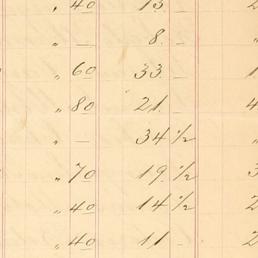 " 40 13 –
" – 8 –
" 60 33 –
" 80 21 –
" – 34 ½
" 70 19 ½
" 40 14 ½
" 40 11 –